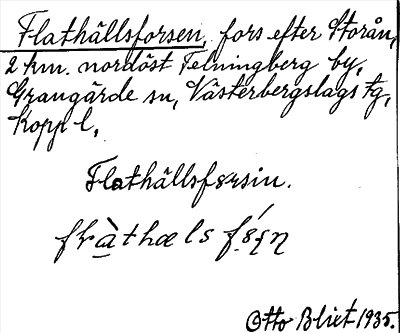 Flathällsforsen, fors efter Storån,
2 km. nordöst Telningberg by,
Grangärde sn, Västerbergslags tg,
Kopp l,
Flathällsforsin.
Otto Blixt 1935.